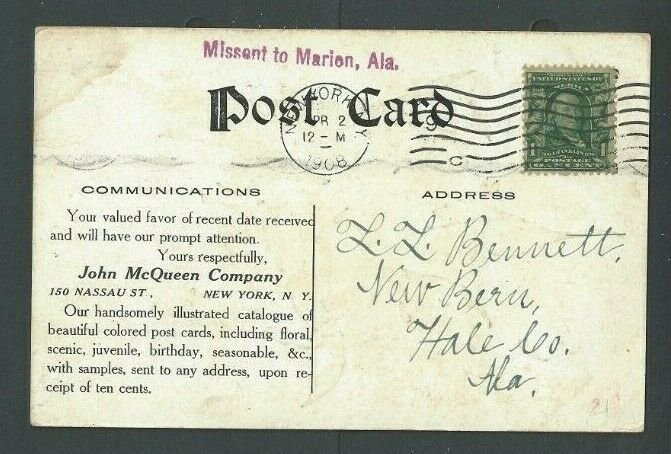 Missent to Marion, Ala.
Post Card
NEW YORK, N.Y.
APR 2
12-M
1908
9
C
UNITED STATES OF AMERICA
1 FRANKLIN 1
POSTAGE
ONE CENT
COMMUNICATIONS
Your valued favor of recent date received
and will have our prompt attention.
Yours respectfully,
John McQueen Company
150 NASSAU ST, NEW YORK, N. Y.
Our handsomely illustrated catalogue of
beautiful colored post cards, including floral,
scenic, juvenile, birthday, seasonable, &c.,
with samples, sent to any address, upon re-
ceipt of ten cents.
ADDRESS
L. L. Bennett.
New Bern,
Hale Co.
Ala.